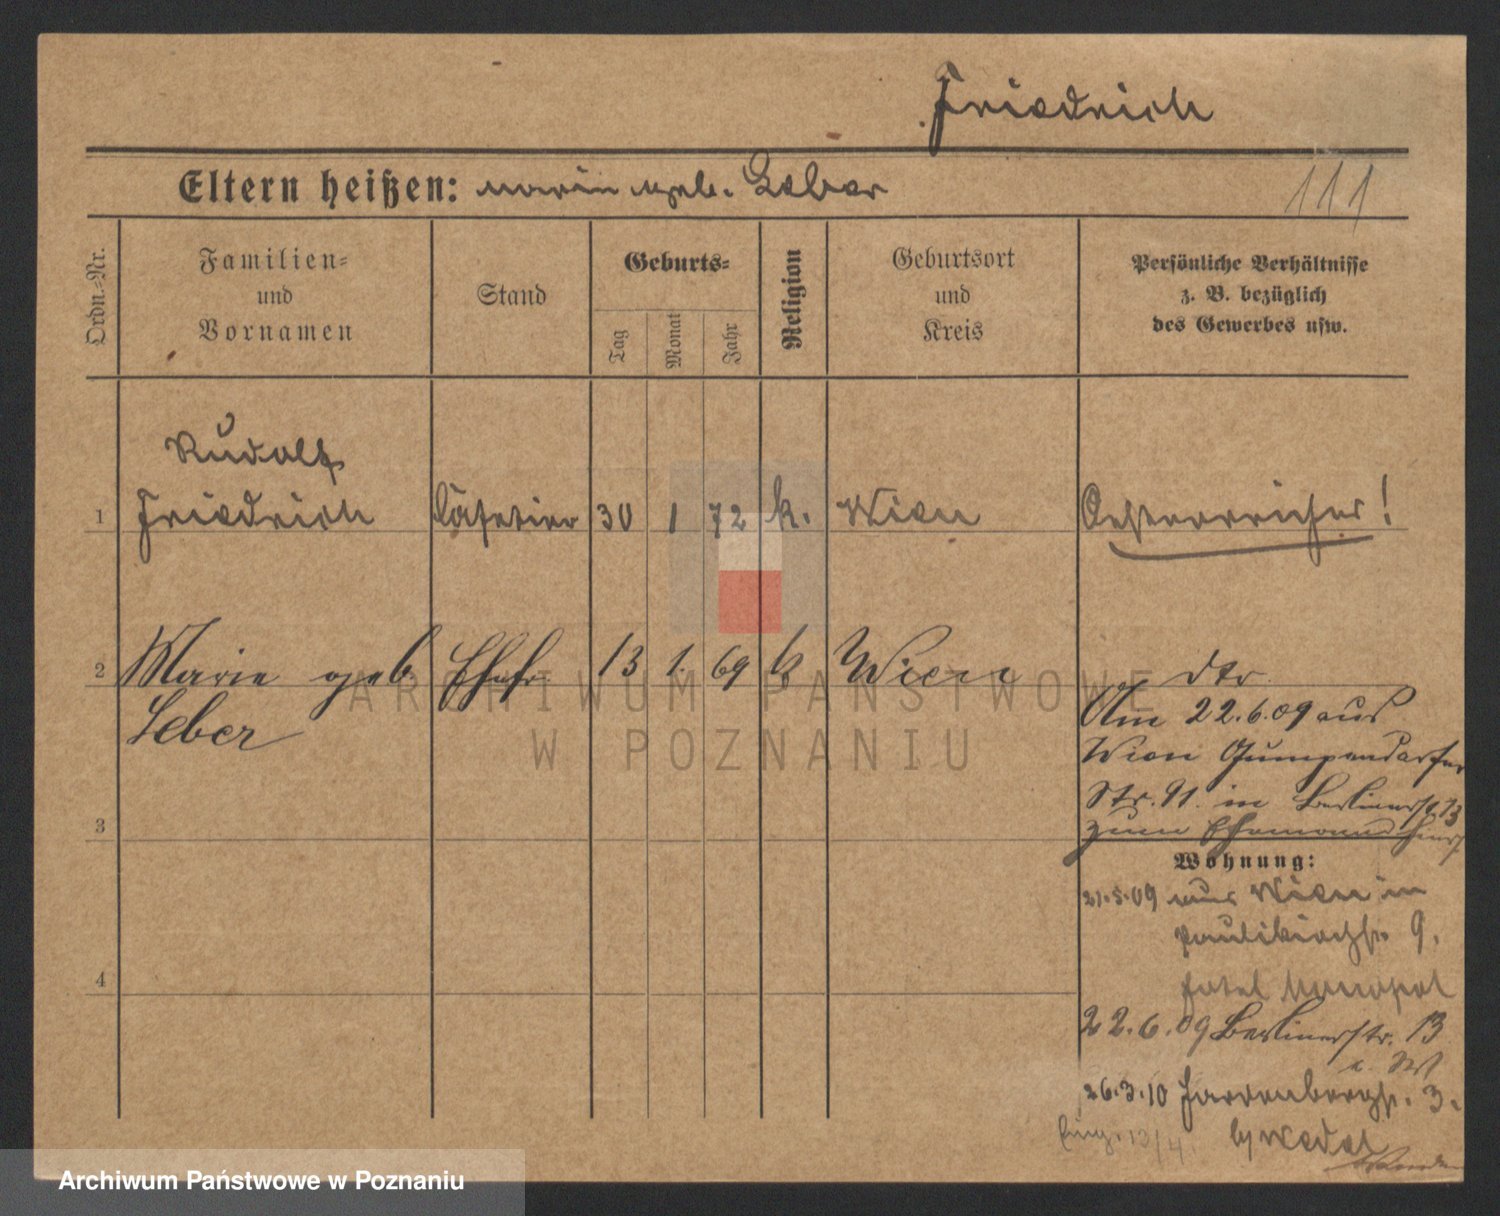 Friedrich
Eltern heißen: geb. Leber
111
Ordn.-Nr.
Familien-
und
Vornamen
Stand
Geburts-
Tag
Monat
Jahr
Religion
Geburtsort
und
Kreis
Persönliche Verhältnisse
z. B. bezüglich
des Gewerbes usw.
Rudolf
1 Friedrich Cafetier 30 1 72 k. Wien Oesterreicher!
2 Marie geb. Ehefr. 13 1. 69 k Wien dtr.
Leber
Am 22.6.09 aus
Wien Gumpendorfer
Str. 91. in Berlinerstr. 13
zum Ehemann
3
Wohnung:
21.5.09 aus Wien in
Paulikirchstr. 9.
4
Hotel Monopol
22.6.09 Berlinerstr. 13
26.3.10 Hardenbergstr. 3.
b/ Wedel
ARCHIWUM PAŃSTWOWE
W POZNANIU
Archiwum Państwowe w Poznaniu